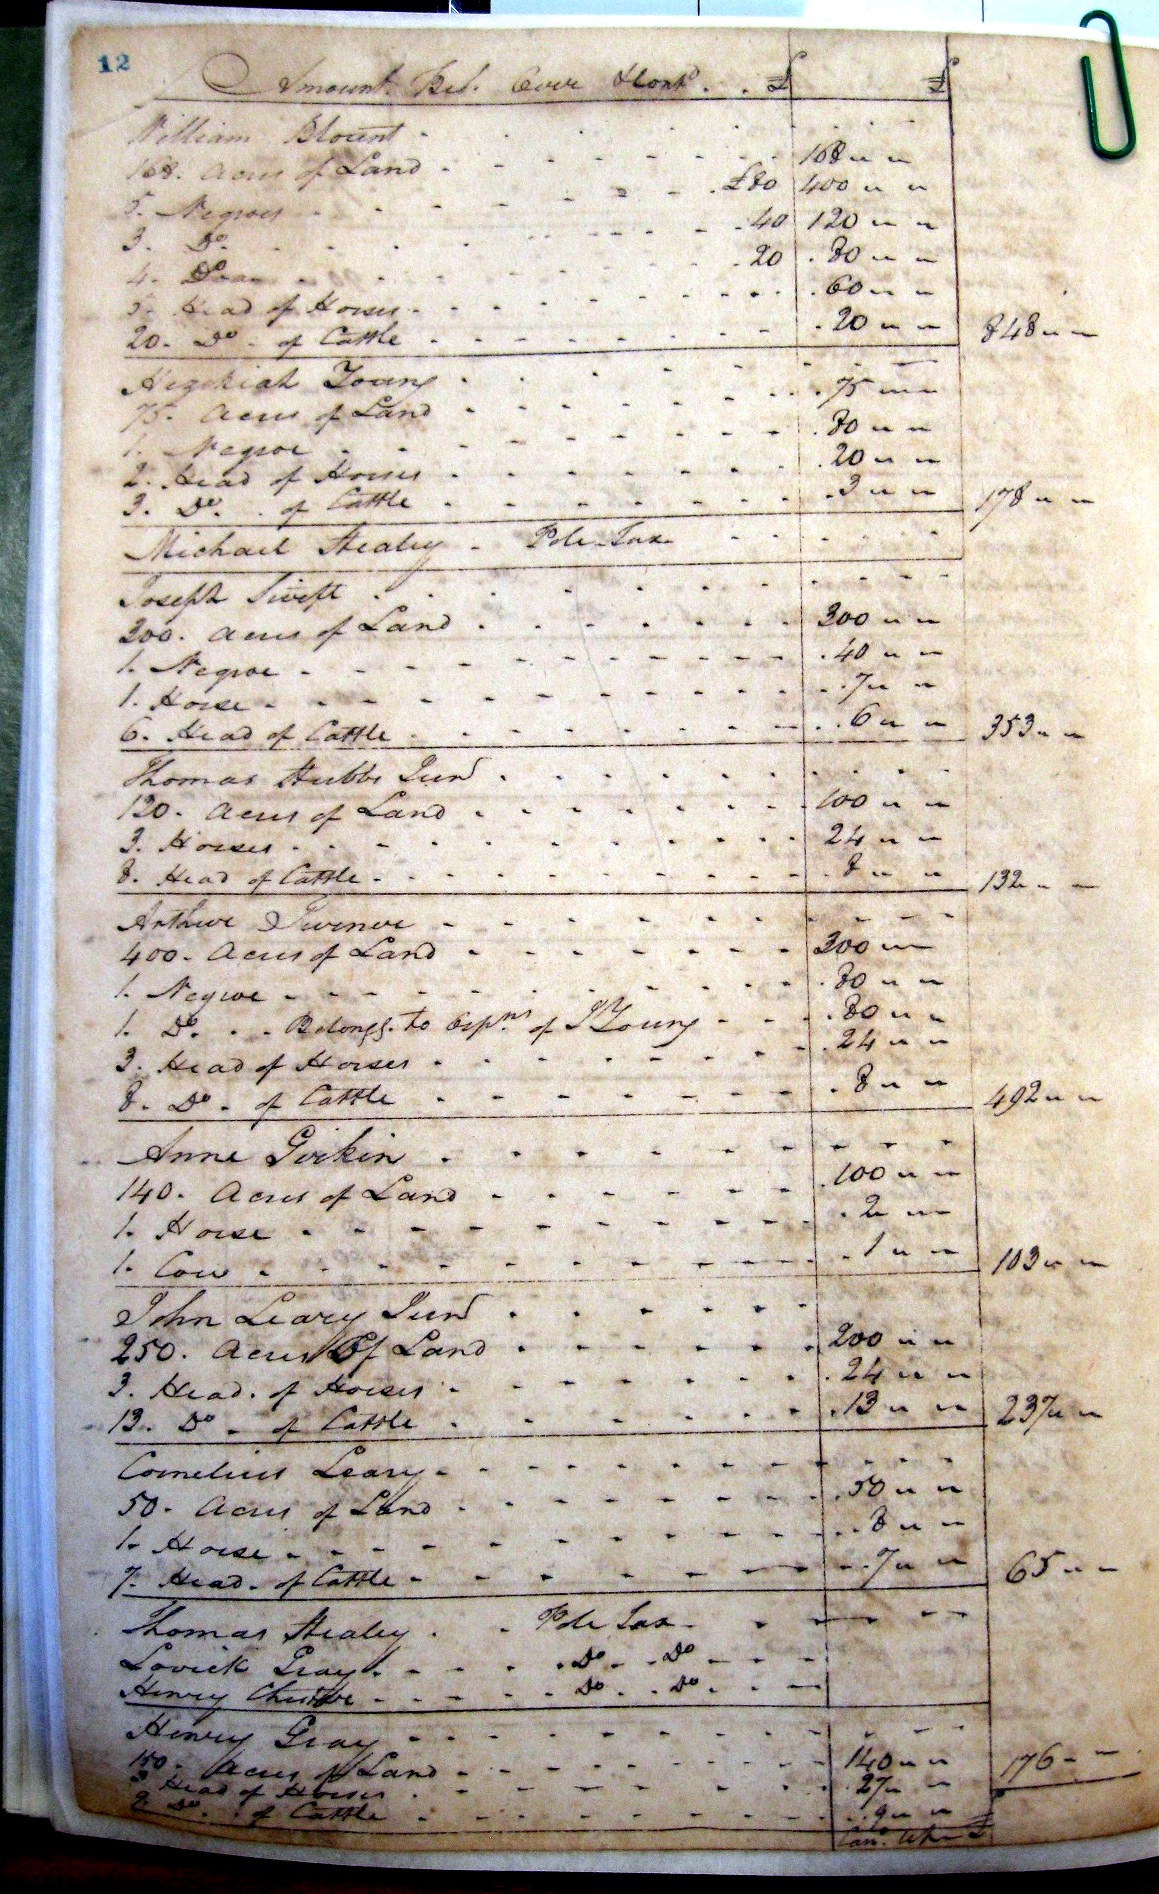 12
Amount Bro.t Over £ £
William Blount
168. Acres of Land 168 " "
5. Negroes £80 400 " "
3. Do. 40 120 " "
4. Do 20 80 " "
5. Head of Horses 60 " "
20. Do of Cattle 20 " " 848 " "
Hezekiah Young
75. Acres of Land 75 " "
1. Negroe 80 " "
2. Head of Horses 20 " "
3. Do. of Cattle 3 " " 178 " "
Michael Healey Pole Tax
Joseph Swift
300. Acres of Land 300 " "
1. Negroe 40 " "
1. Horse 7 " "
6. Head of Cattle 6 " " 353 " "
Thomas Hubbs Junr
120. Acres of Land 100 " "
3. Horses 24 " "
8. Head of Cattle 8 " " 132 " "
Arthur Turner
400. Acres of Land 300 " "
1. Negroe 80 " "
1. Do. Belongs. to Orpns of Young 80 " "
3. Head of Horses 24 " "
8. Do. of Cattle 8 " " 492 " "
Anne Girkin
140. Acres of Land 100 " "
1. Horse 2 " "
1. Cow 1 " " 103 " "
John Leary Junr
250. Acres Of Land 200 " "
3. Head. of Horses 24 " "
13. Do of Cattle 13 " " 237 " "
Cornelius Leary
50. Acres of Land 50 " "
1. Horse 8 " "
7. Head of Cattle 7 " " 65 " "
Thomas Healey Pole Tax
Lovick Gray Do Do
Henry Do Do
Henry Gray
150. Acres of Land 140 " " 176
3 Head of Horses 27 " "
9. Do. of Cattle 9 " "
£